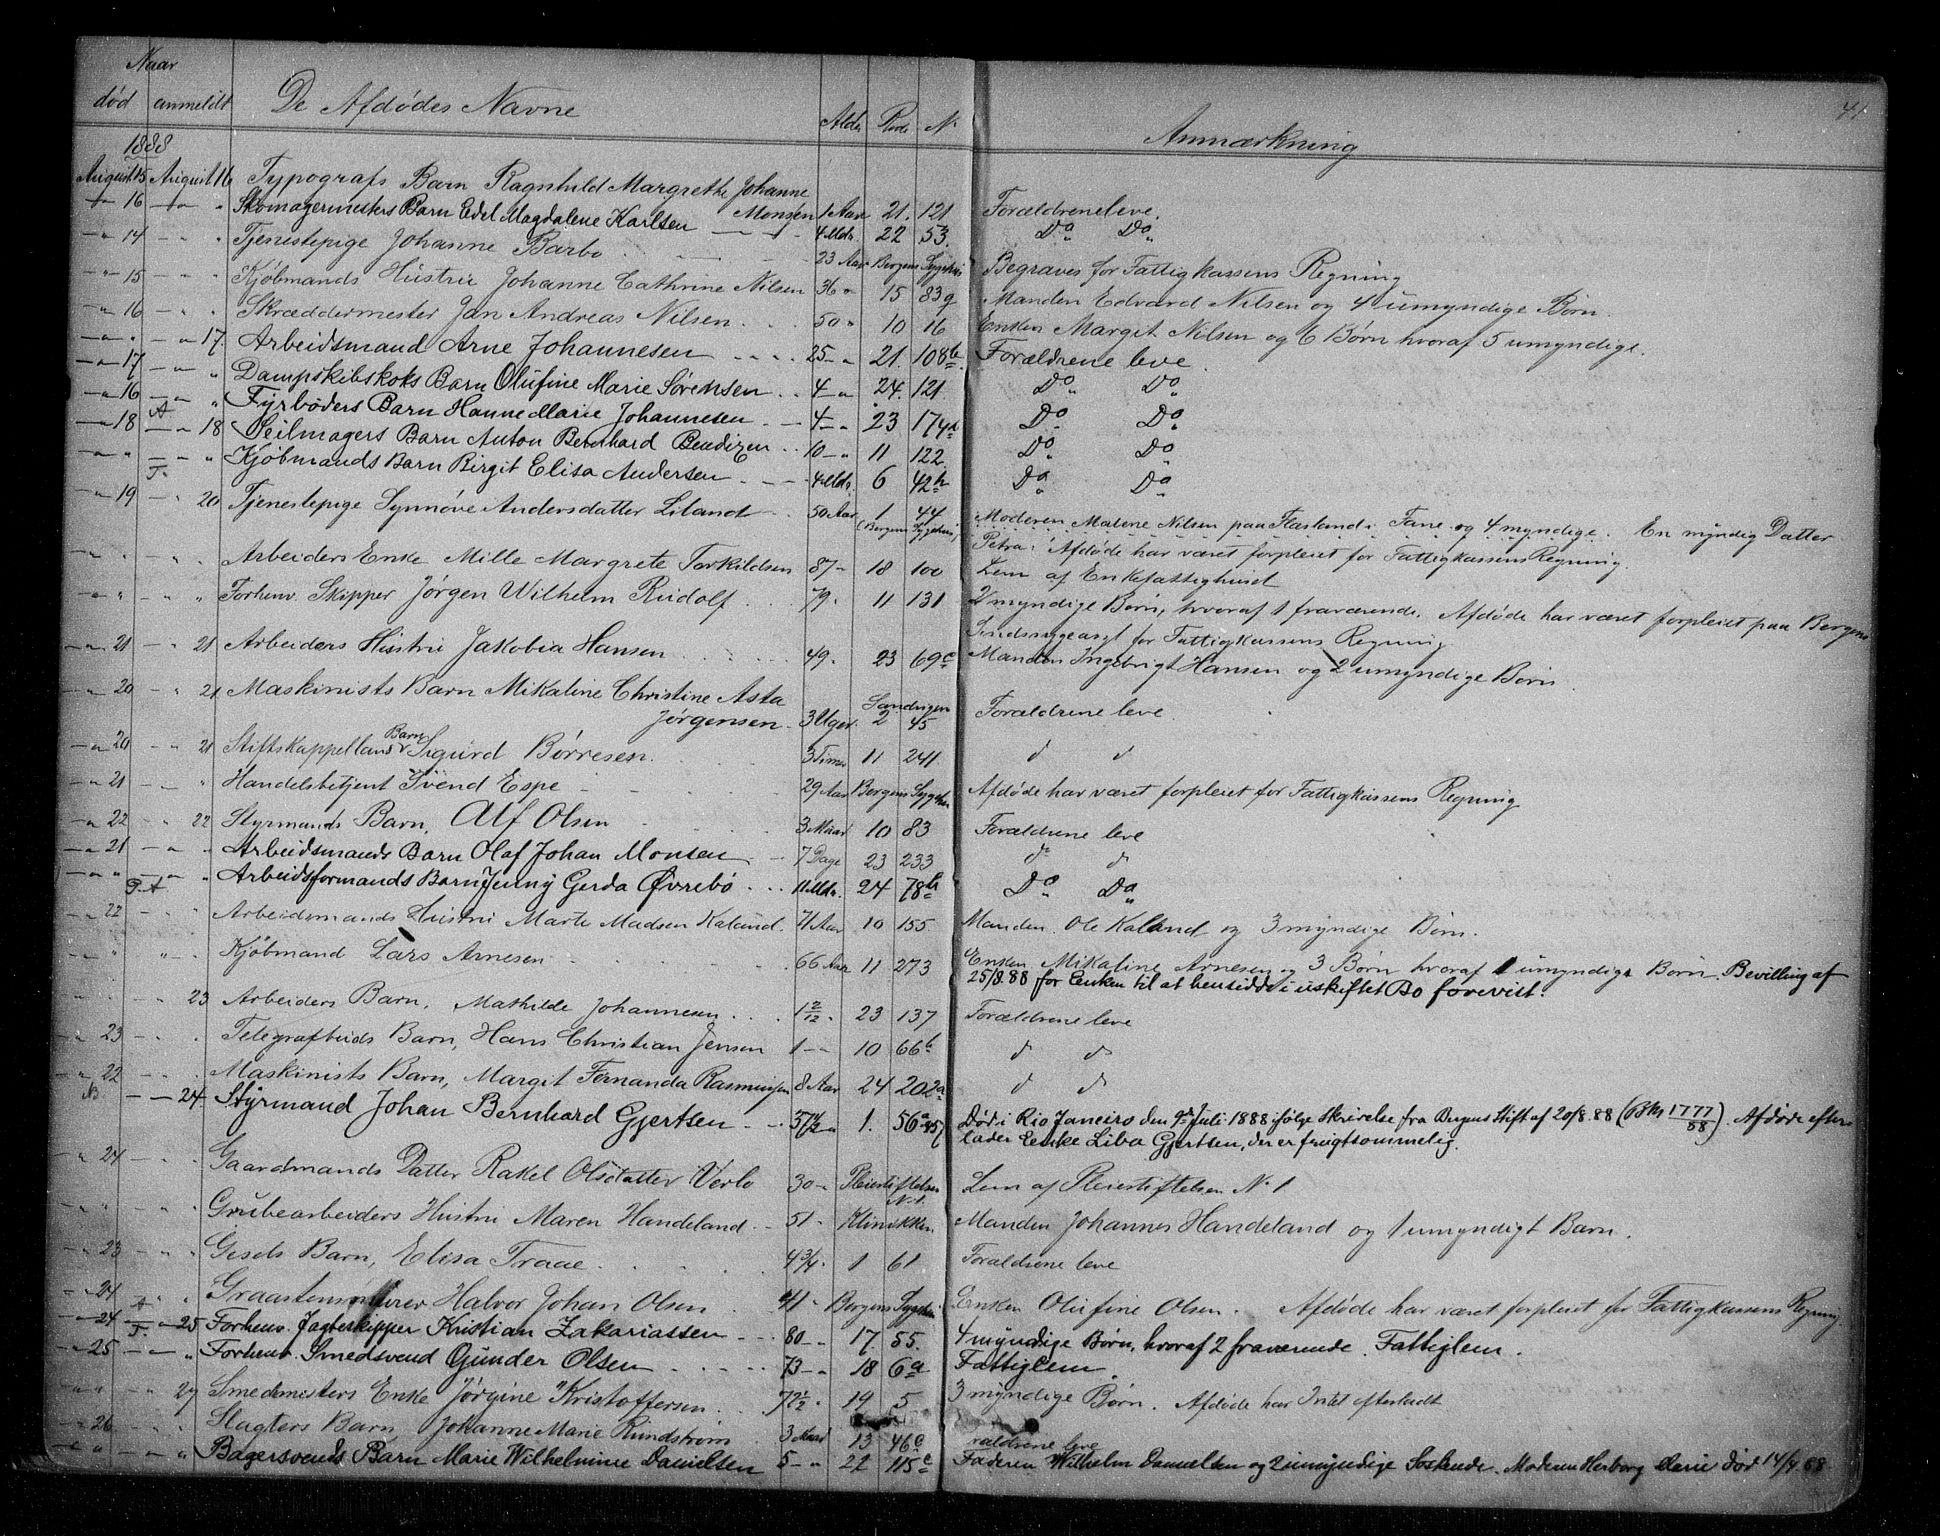 Naar
død anmeldt De Afdødes Navne Alder Rode No Anmærkning 41
1888
August 15 August 16 Typografs Barn Ragnhild Margrethe Johanne
Monsen 1 Aar 21. 121 Forældrene leve.
-"- 16 -"- " Skomagermesters Barn Edel Magdalene Karlsen 4 Mdr. 22 53. Do Do
-"- 14 - " " Tjenestepige Johanne Barbo 23 Aar Bergens Sygehus Begraves for Fattigkassens Regning
-"- 15 Kjøbmands Hustru Johanne Cathrine Nilsen 36 " 15 83g Manden Edvard Nilsen og 4 umyndige Børn.
-"- 16 - " " Skræddermester Jan Andreas Nilsen 50 " 10 16 Enken Margit Nilsen og 6 Børn hvoraf 5 umyndige.
-"- " -"- 17. Arbeidsmand Arne Johannesen 25 -"- 21. 108b. Forældrene leve.
-"- 17 -"- " Dampskibskoks Barn Olufine Marie Sørensen 4 -"- 24. 121 Do Do
-"- 16 -"- " Fyrbøders Barn Hanne Marie Johannesen 4 -"- 23 174a Do Do
-"- 18 A -"- 18 Seilmagers Barn Anton Bernhard Bendixen 10 -"- 11 122. Do Do
-"- " -"- " Kjøbmands Barn Birgit Elisa Andersen 4 Mdr. 6 42b Do Do
-"- 19 - " 20 Tjenestepige Synnøve Andersdatter Liland 50 Aar 1 44 Moderen Malene Nilsen paa Flæsland i Fane og 4 myndige. En myndig Datter
(Bergens Sygehus) Petra. Afdøde har været forpleiet for Fattigkassens Regning.
" " - " " Arbeiders Enke Mille Margrete Torkildsen 87 - 18 100 Lem af Enkefattighuset
-"- " - " " Forhenv. Skipper Jørgen Wilhelm Rudolf 79. 11 131 2 myndige Børn, hvoraf 1 fraværende. Afdøde har været forpleiet paa Bergens
Sindssygeasyl for Fattigkassens Regning
-"- 21 - " 21 Arbeiders Hustru Jakobia Hansen 49. 23 69c Manden Ingebrigt Hansen og 2 umyndige Børn.
-"- 20 - " 21 Maskinists Barn Mikaline Christine Asta Sandvigen
Jørgensen 3 Uger. 2 45 Forældrene leve.
-"- 20 - " 21 Stiftskappelland Barn Sigurd Børresen 3 Timer 11 241 d d
-"- 21 - " Handelsbetjent Svend Espe 29 Aar Bergens Sygehus Afdøde har været forpleiet for Fattigkassens Regning
-"- 22 - " 22 Styrmands Barn, Alf Olsen 3 Maar 10 83 Forældrene leve
-"- 21 -"- " Arbeidsmands Barn Olaf Johan Monsen 7 Dage 23 233 d d
-"- " -"- " Arbeidsformands Barn Jenny Gerda Øvrebø 11 Mdr. 24 78b Do Do
-"- 22 - " " Arbeidsmands Hustru Marte Madsen Kaland. 71 Aar 10 155 Manden Ole Kaland og 3 myndige Børn.
" " " " Kjøbmand Lars Arnesen 66 Aar 11 273 Enken Mikaline Arnesen og 3 Børn hvoraf 1 umyndige Børn. Bevilling af
25/8.88 for Enken til at hensidde i uskiftet Bo forevist.
" " - " 23 Arbeiders Barn, Mathilde Johannesen 1 2/12. 23 137 Forældrene leve
-"- 23 - " . Telegrafbuds Barn, Hans Christian Jensen 1 -- 10 66b d d
-"- 22 - " . Maskinists Barn, Margit Fernanda Rasmussen 8 Aar 24 202a d d
-- 24. Styrmand Johan Bernhard Gjertsen 1. 56a Død i Rio Janeiro den 9de Juli 1888 ifølge Skrivelse fra Bergens Stift af 20/8.88 (Bk 1777/88). Afdøde efter
lader Enke Liba Gjertsen, der er frugtsommelig.
-"- 24 - " . Gaardmands Datter Rakel Olsdatter Verlo 30 -"- Pleiestiftelsen No 1. Lem af Pleiestiftelsen No 1
" " - " " Grubearbeiders Hustru Maren Handeland 51 " Klinikken Manden Johannes Handeland og 1 umyndigt Barn.
-"- 23 - " " Gjæls Barn, Elisa Traae 4 3/4. 1 61 Forældrene leve
-"- 24 " Graastensmurer Halvor Johan Olsen 41 " Bergens Sygehus Enken Olufine Olsen. Afdøde har været forpleiet for Fattigkassens Regning
-"- 24 -"- 25 Forhenv. Jagteskipper Kristian Zakariassen 80 -- 17. 55. 4 myndige Børn, hvoraf 2 fraværende. Fattiglem.
-"- 25 -"- " Forhenv. Smedsvend Gunder Olsen 73 -- 18 6a Fattiglem
-"- " - " 27 Smedmesters Enke Jørgine Kristoffersen 72 1/2. 19 5 3 myndige Børn. Afdøde har Intet efterladt
-"- 26 - " " Slagters Barn, Johanne Marie Rundstrøm 3 Maar 13 46c rældrene leve
-"- " -"- " Bagersvends Barn Marie Wilhelmine Danielsen 5 - " 22 115c Faderen Wilhelm Danielsen og 2 umyndige Søskende. Moderen Herborg Marie død 14/4 88